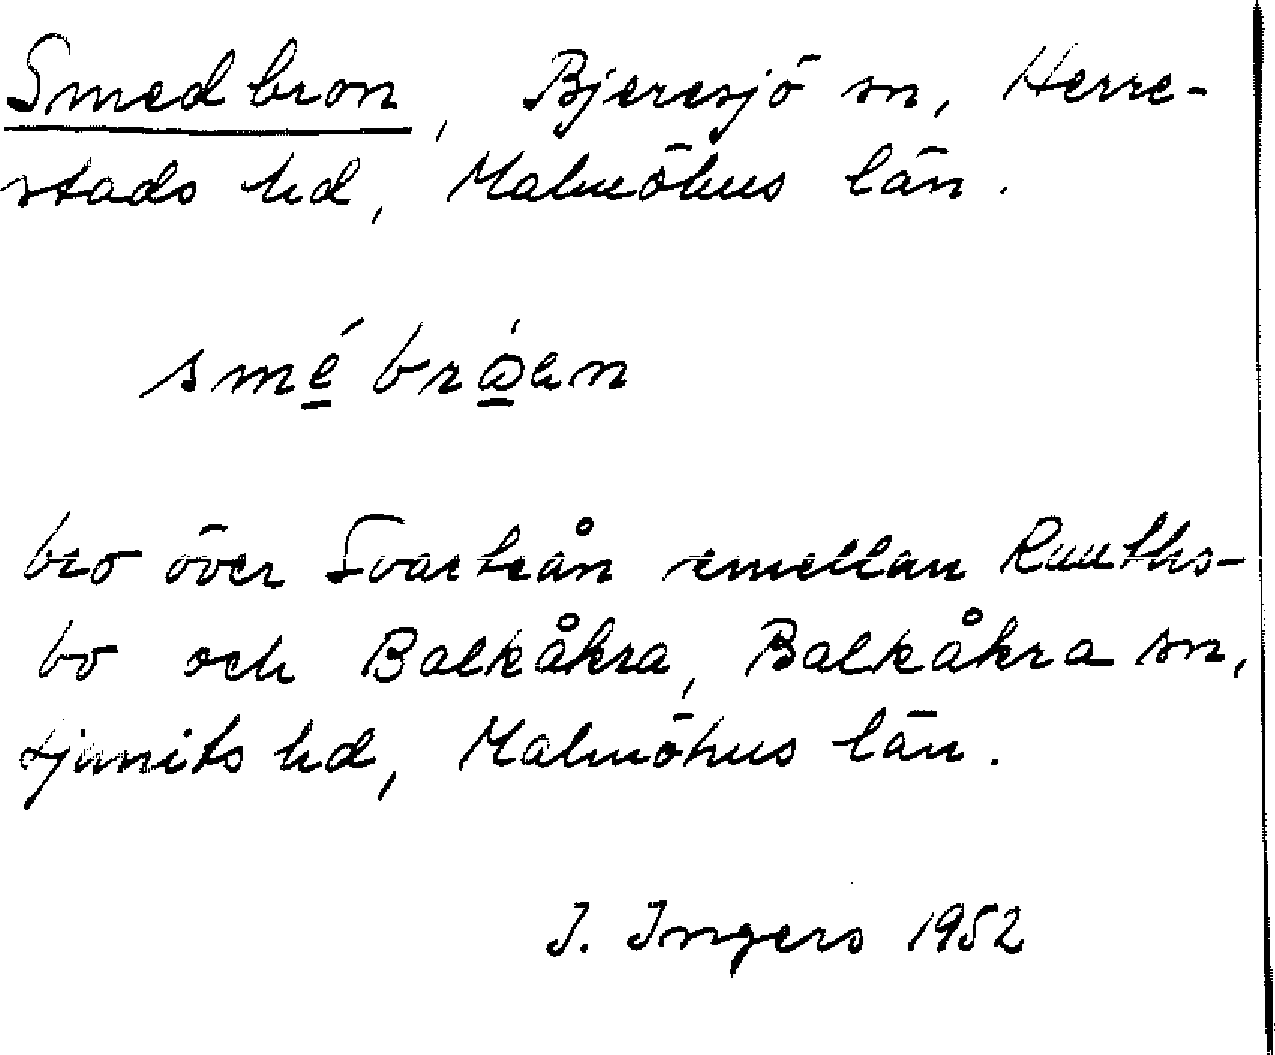 Smedbron, Bjeresjö sn, Herre-
stads hd, Malmöhus län.
bro över Svarteån emellan Ruuths-
bo och Balkåkra, Balkåkra sn,
Ljunits hd, Malmöhus län.
I. Ingers 1952